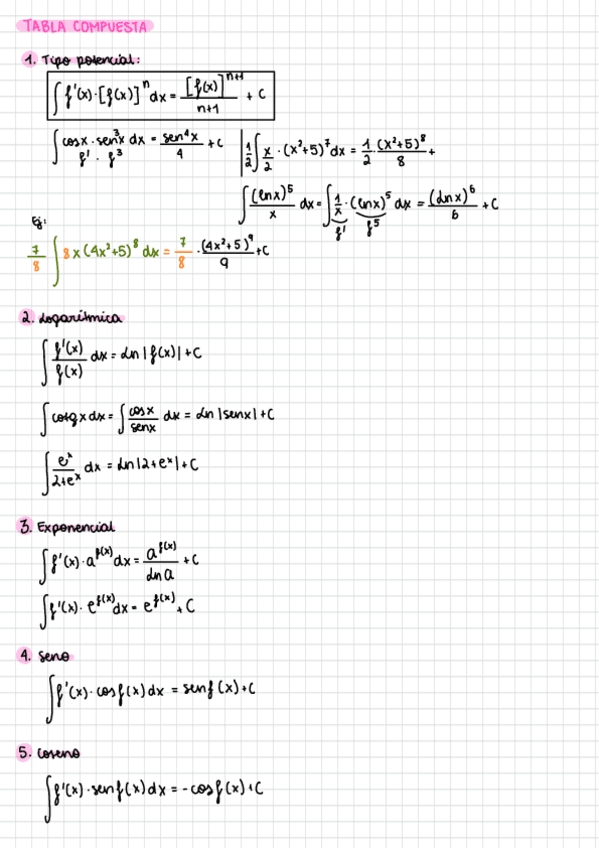 TABLA COMPUESTA
1. Tipo potencial:
∫ f'(x)·[f(x)]^n dx = [f(x)]^(n+1) / (n+1) + C
∫ cosx · sen³x dx = sen⁴x / 4 + C
f' · f³
1/2 ∫ x/2 · (x²+5)⁷ dx = 1/2 · (x²+5)⁸ / 8 +
∫ (lnx)⁵ / x dx = ∫ 1/x · (lnx)⁵ dx = (lnx)⁶ / 6 + C
f' f⁵
Ej:
7/8 ∫ 8x(4x²+5)⁸ dx = 7/8 · (4x²+5)⁹ / 9 + C
2. Logarítmica
∫ f'(x) / f(x) dx = Ln |f(x)| + C
∫ cotg x dx = ∫ cosx / senx dx = Ln |senx| + C
∫ e^x / (2+e^x) dx = Ln |2+e^x| + C
3. Exponencial
∫ f'(x) · a^f(x) dx = a^f(x) / Ln a + C
∫ f'(x) · e^f(x) dx = e^f(x) + C
4. Seno
∫ f'(x) · cosf(x) dx = senf(x) + C
5. Coseno
∫ f'(x) · senf(x) dx = -cosf(x) + C